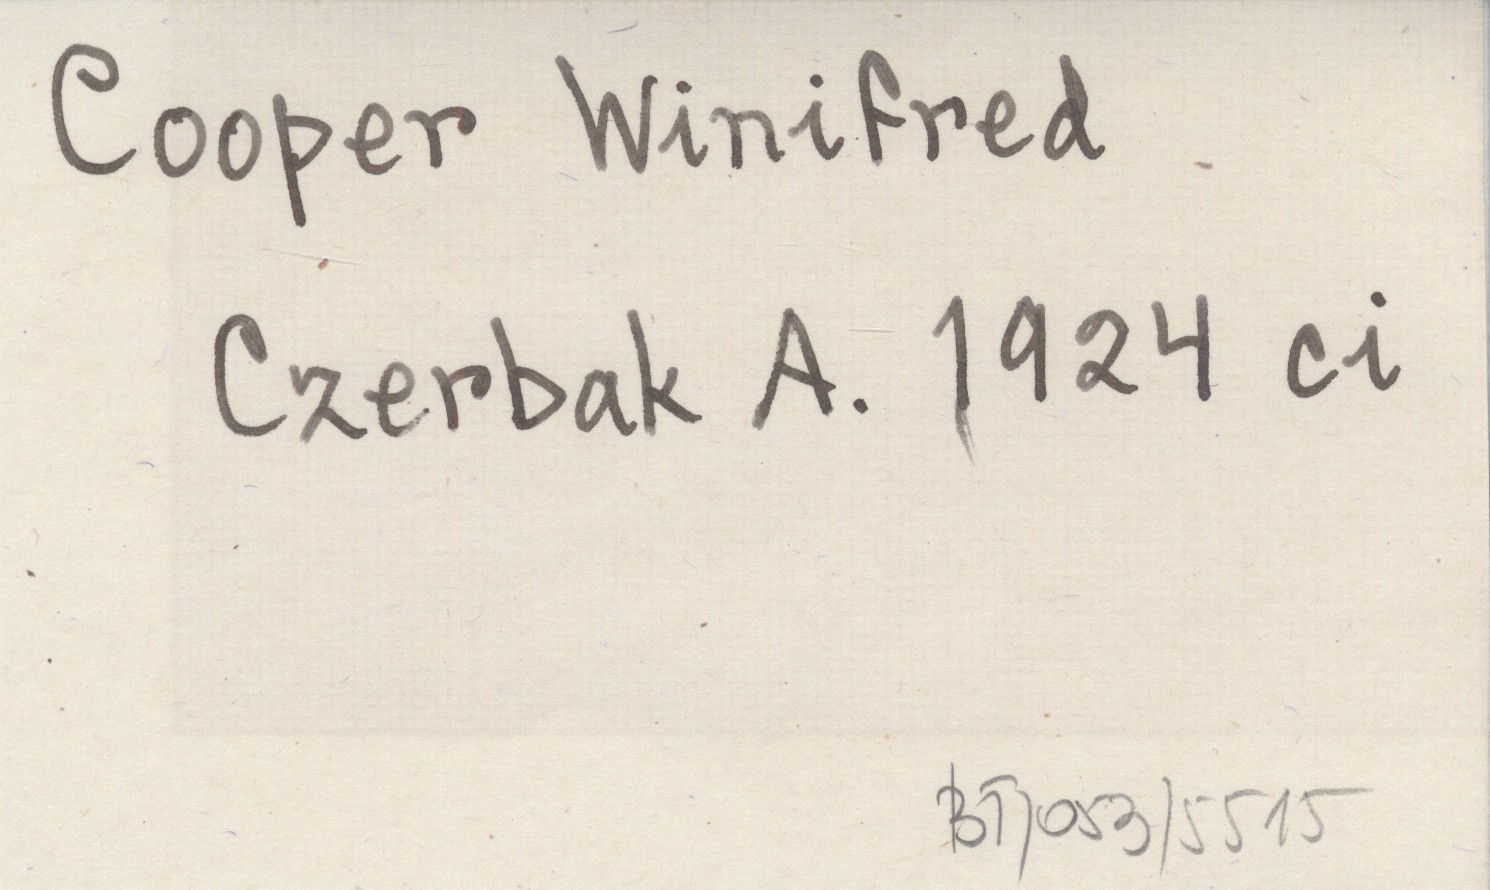 Cooper Winifred
Czerbak A. 1924 ci
BT/053/5515